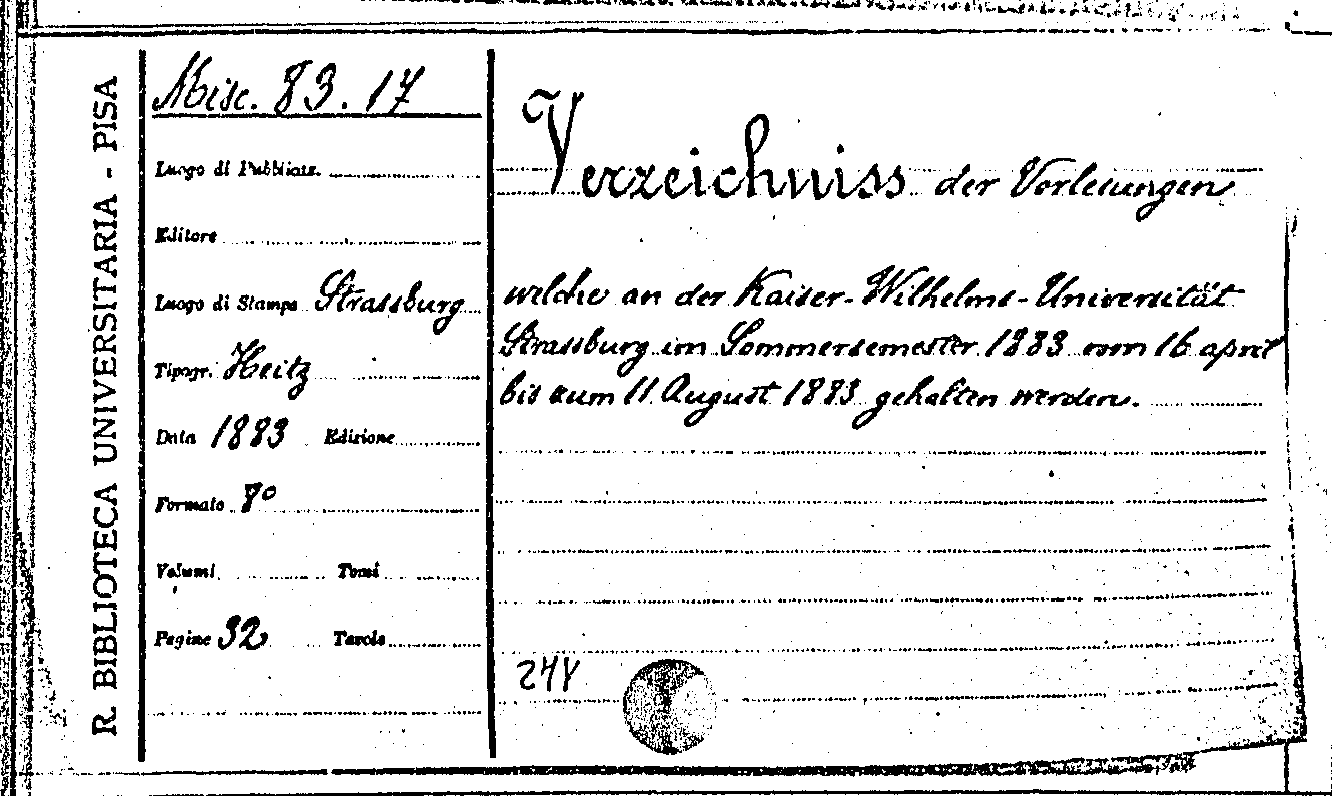 R. BIBLIOTECA UNIVERSITARIA - PISA
Misc. 83.17
Luogo di Pubblicaz.
Editore
Luogo di Stampa Strassburg
Tipogr. Heitz
Data 1883 Edizione
Formato 8°
Volumi Tomi
Pagine 32 Tavole
Verzeichniss der Vorlesungen
welche an der Kaiser-Wilhelms-Universität
Strassburg im Sommersemester 1883 vom 16 april
bis zum 11 August 1883 gehalten werden.